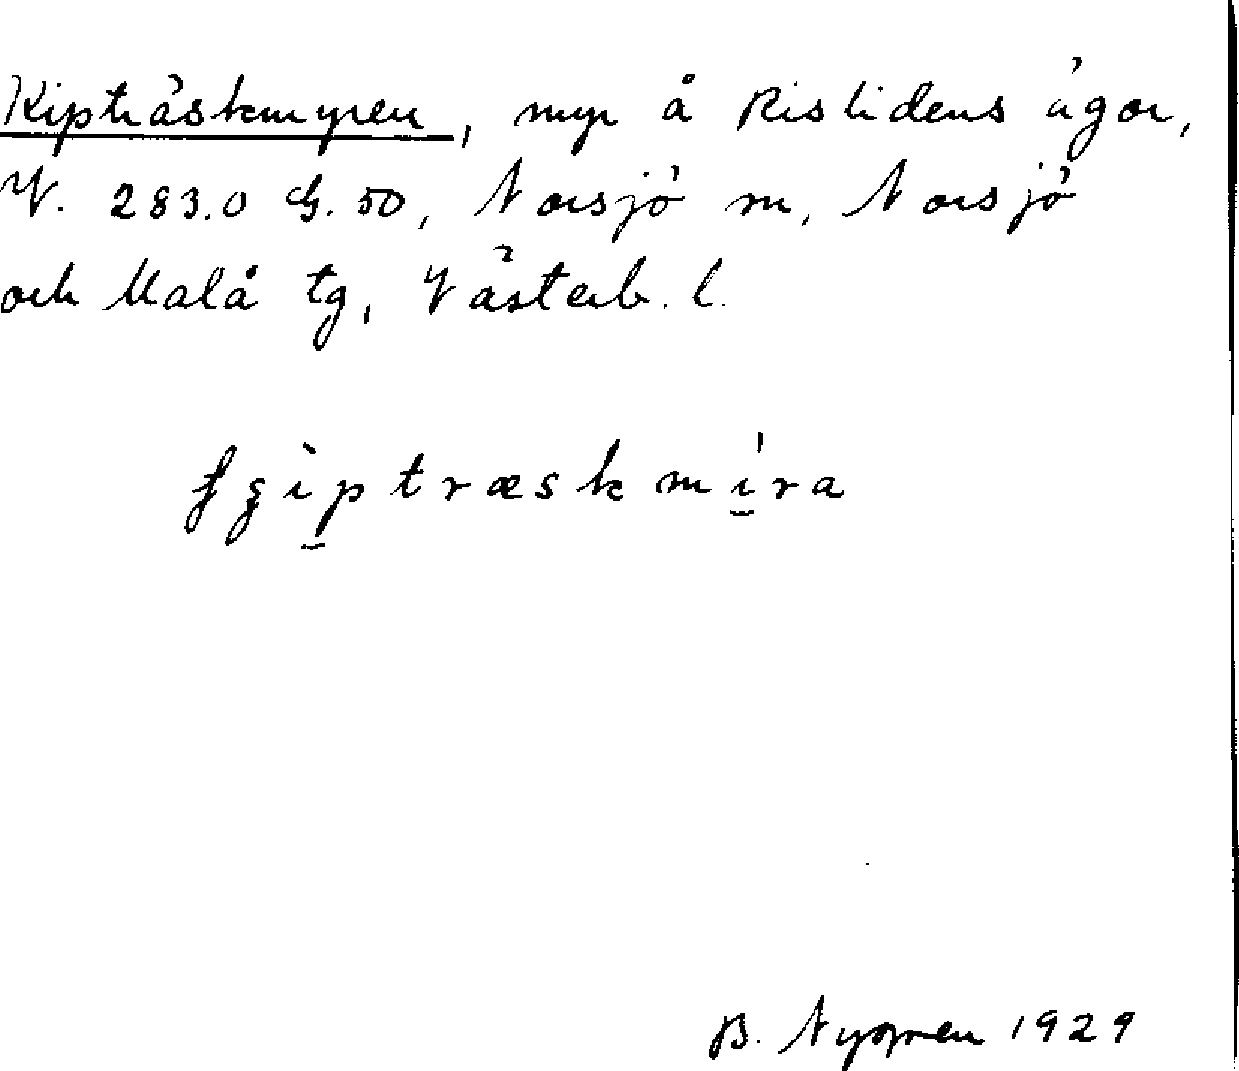 Kipträskmyren, myr å Ristidens ägor,
V. 283.0 G. 50, Norsjö sn, Norsjö
och Malå tg, Västerb. l.
B. Nygren 1929